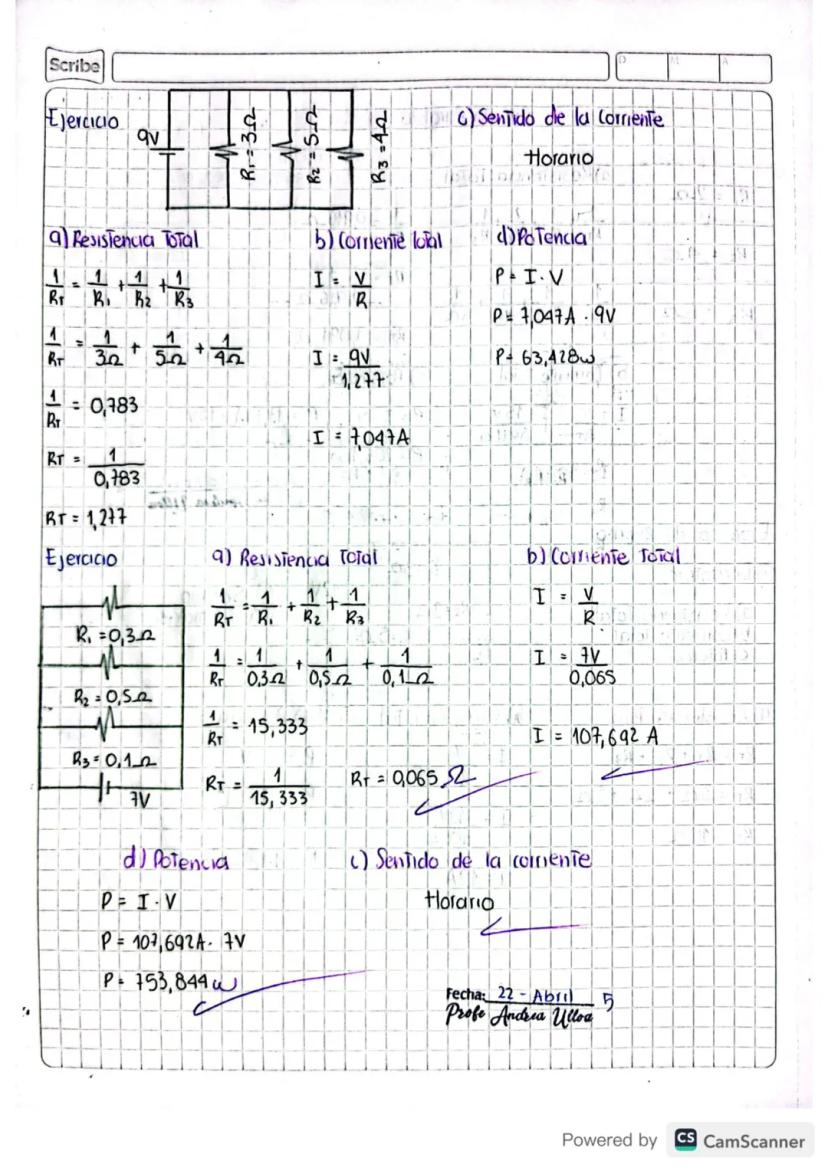 Scribe
D M A
Ejercicio
9V
R₁ = 3Ω
R₂ = 5Ω
R₃ = 4Ω
c) Sentido de la corriente
Horario
a) Resistencia Total
1/RT = 1/R₁ + 1/R₂ + 1/R₃
1/RT = 1/3Ω + 1/5Ω + 1/4Ω
1/RT = 0,783
RT = 1/0,783
RT = 1,277
b) Corriente total
I = V/R
I = 9V/1,277
I = 7,047A
d) Potencia
P = I · V
P = 7,047A · 9V
P = 63,428w
Ejercicio
R₁ = 0,3Ω
R₂ = 0,5Ω
R₃ = 0,1Ω
7V
a) Resistencia Total
1/RT = 1/R₁ + 1/R₂ + 1/R₃
1/RT = 1/0,3Ω + 1/0,5Ω + 1/0,1Ω
1/RT = 15,333
RT = 1/15,333
RT = 0,065 Ω
b) Corriente Total
I = V/R
I = 7V/0,065
I = 107,692 A
d) Potencia
P = I · V
P = 107,692A · 7V
P = 753,844 w
c) Sentido de la corriente
Horario
Fecha: 22 - Abril 5
Profe Andrea Ulloa
Powered by CS CamScanner